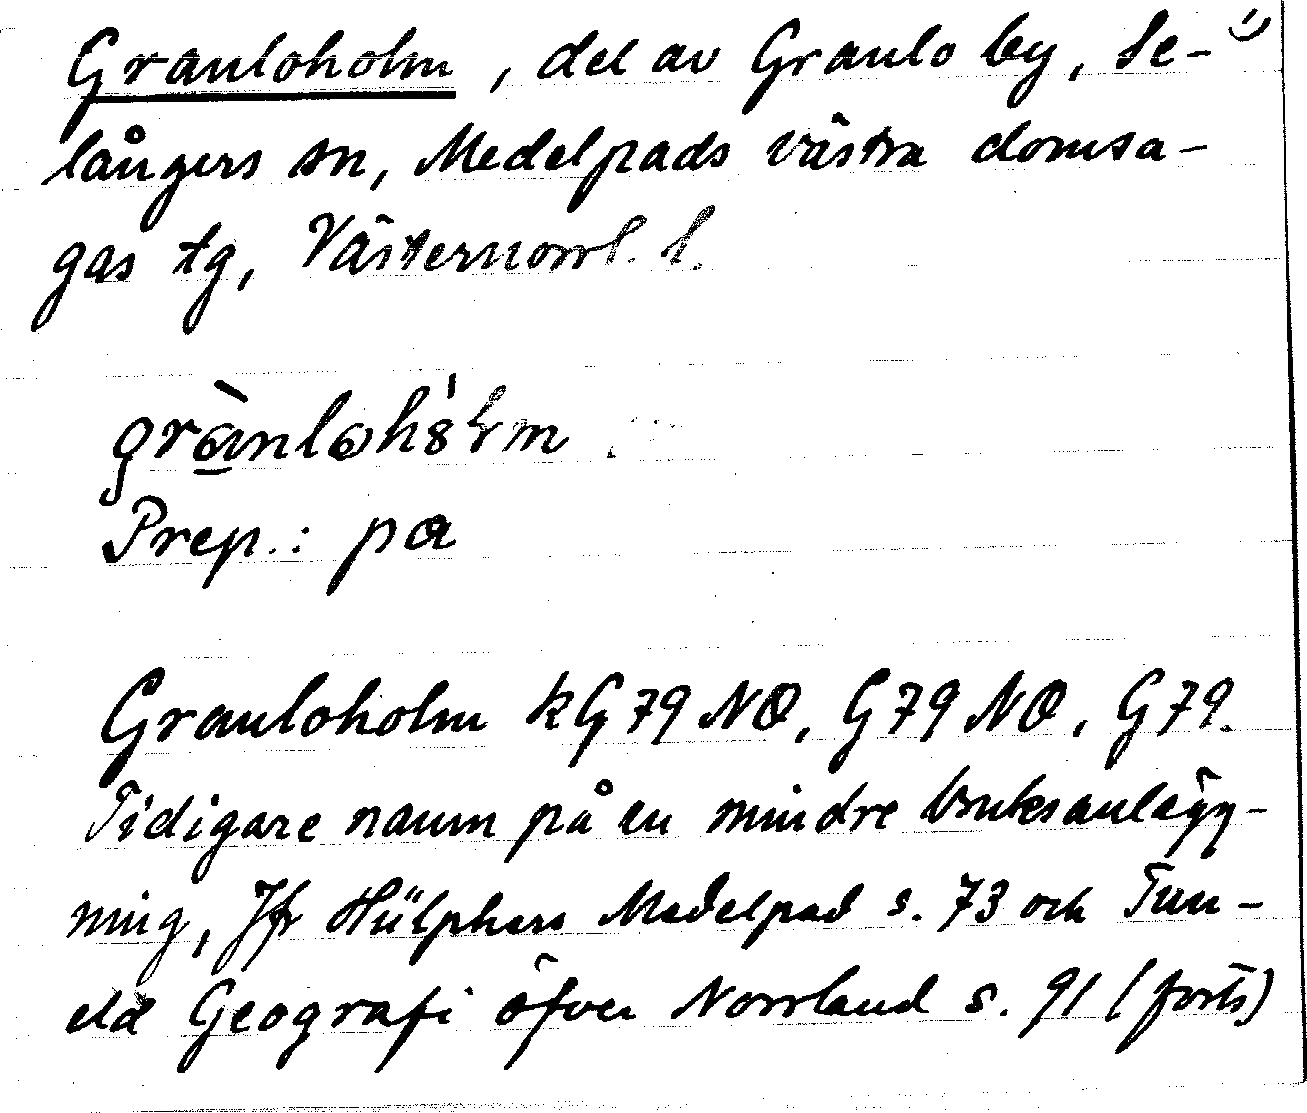 Granloholm, del av Granlo by, Se-
långers sn, Medelpads västra domsa-
gas tg, Västernorrl. l.
Prep.: på
Granloholm kG79NO, G79NO, G79.
Tidigare namn på en mindre bruksanlägg-
ning, Jfr Hülphers Medelpad s. 73 och Tun-
eld Geografi öfver Norrland s. 91 (forts)